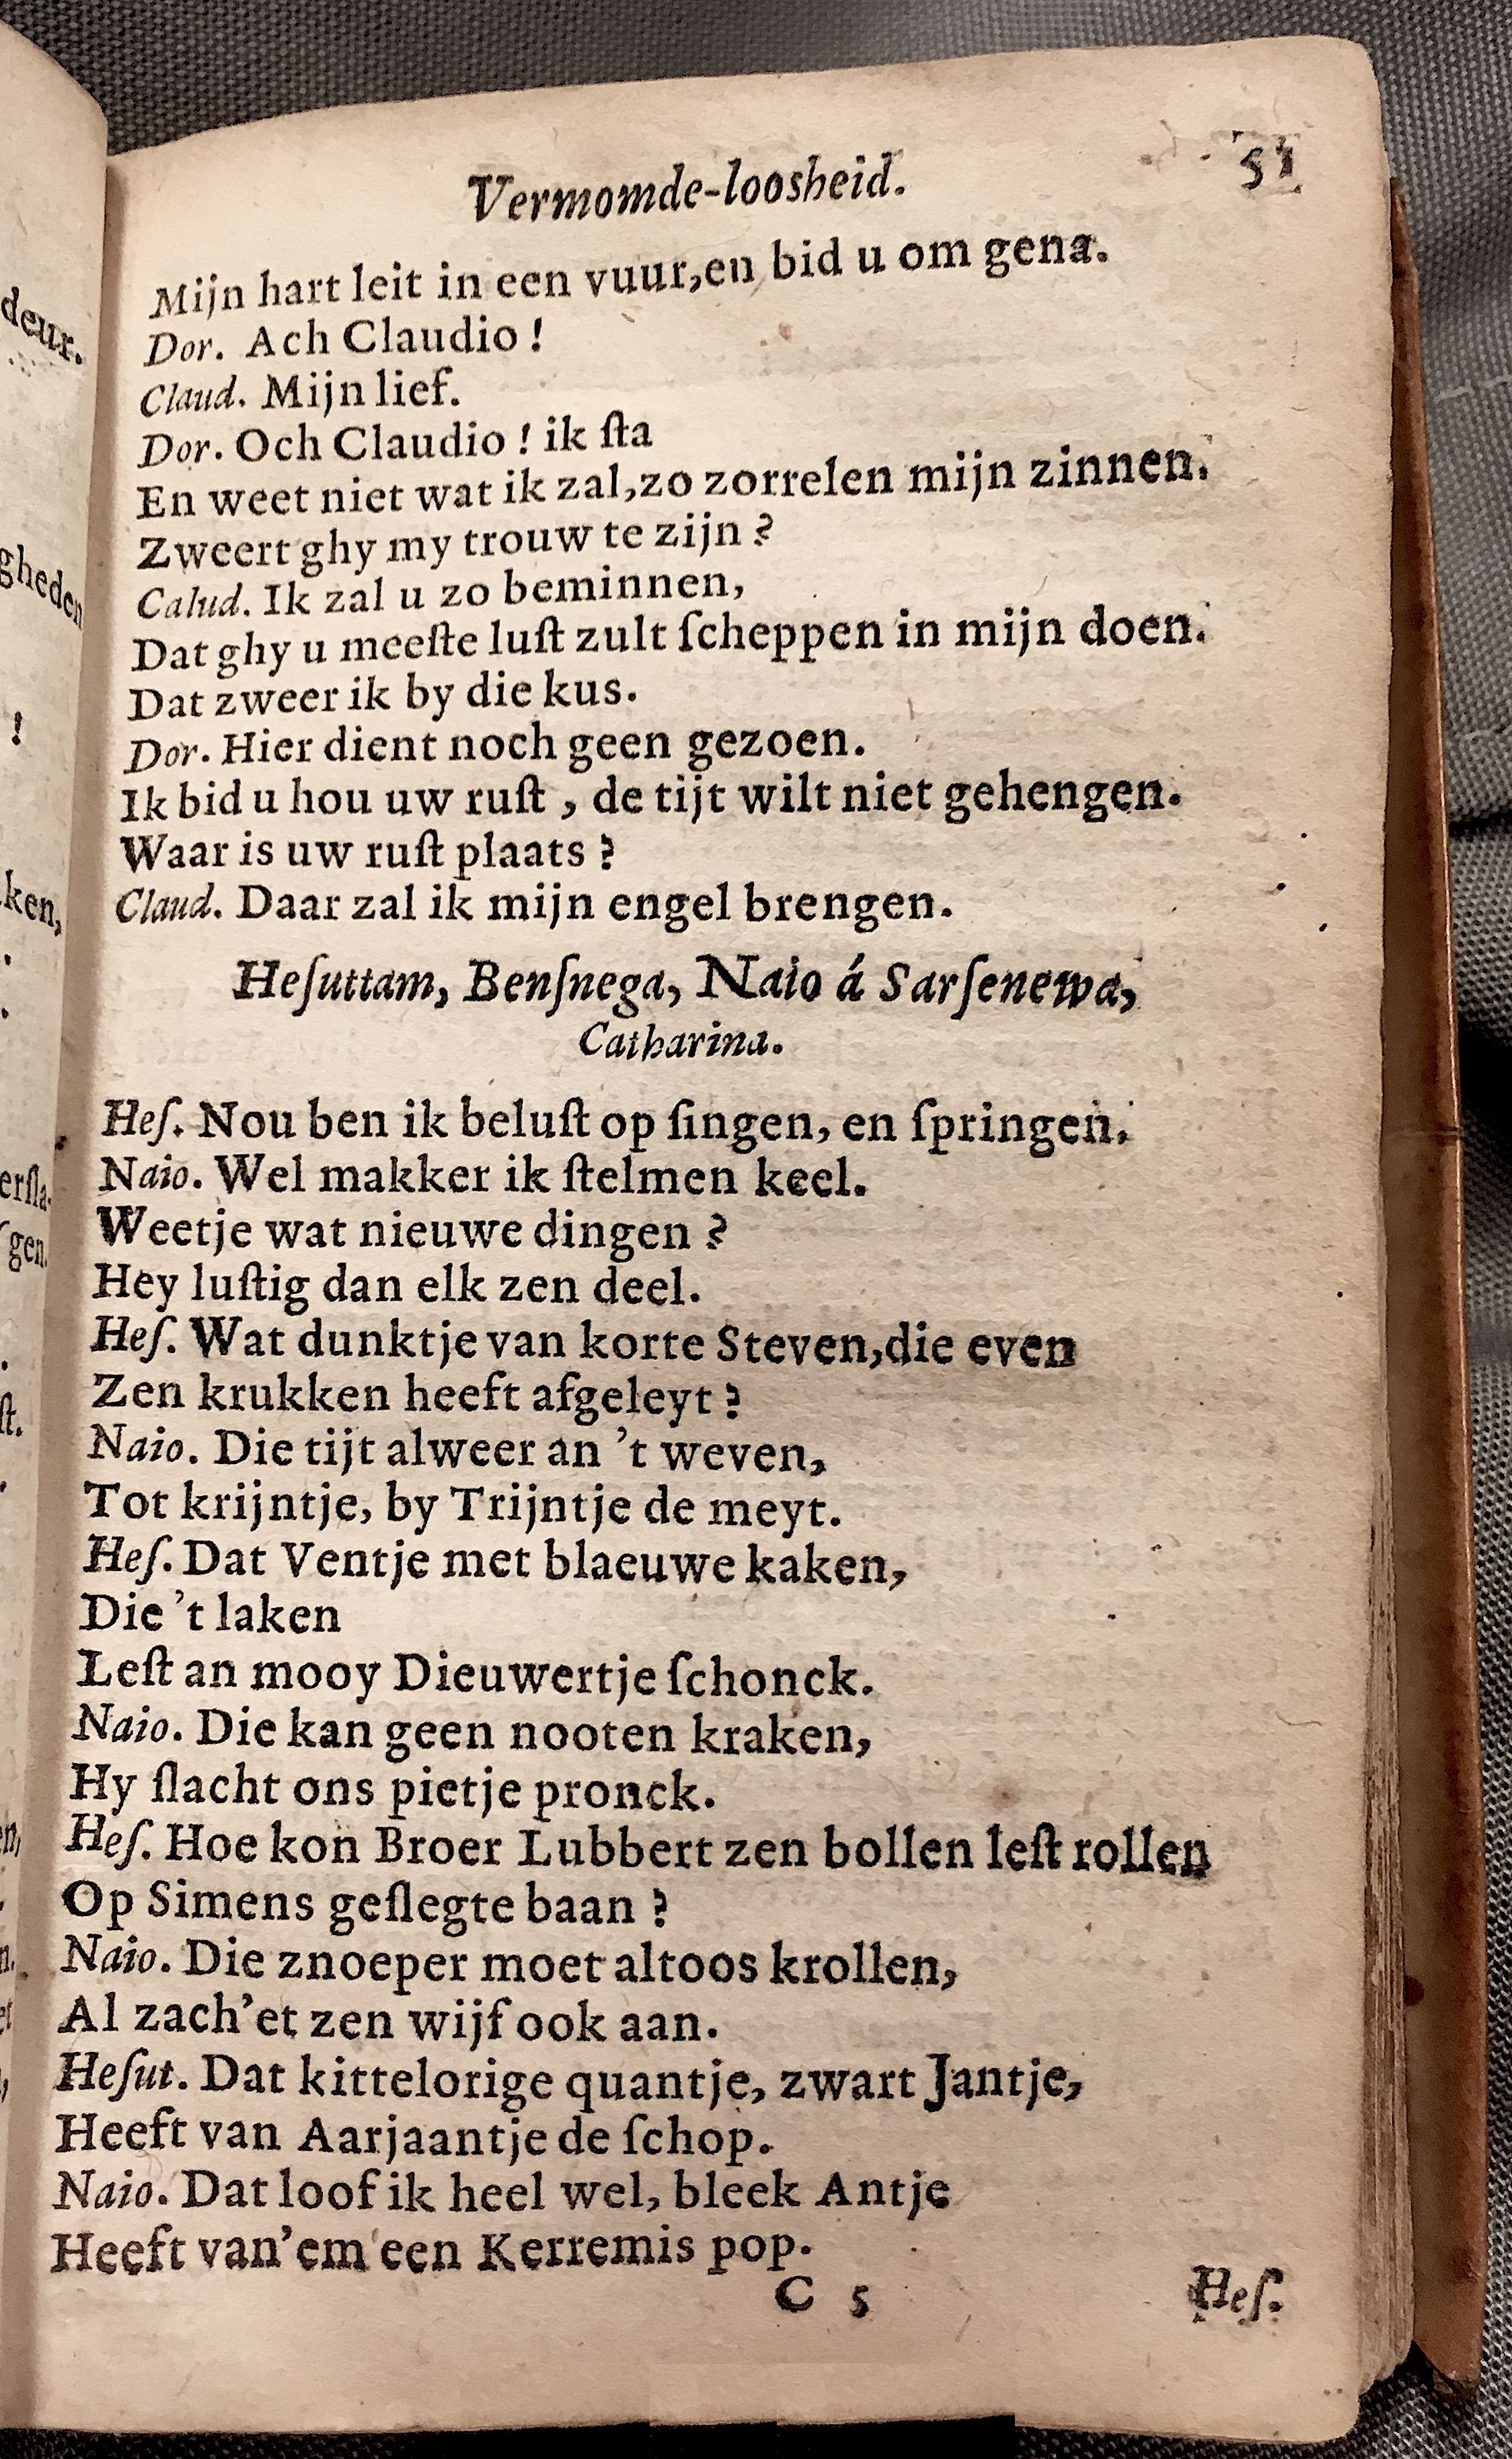 Vermomde-loosheid. 51
Mijn hart leit in een vuur,en bid u om gena.
Dor. Ach Claudio !
Claud. Mijn lief.
Dor. Och Claudio ! ik ſta
En weet niet wat ik zal,zo zorrelen mijn zinnen.
Zweert ghy my trouw te zijn ?
Calud. Ik zal u zo beminnen,
Dat ghy u meeſte luſt zult ſcheppen in mijn doen.
Dat zweer ik by die kus.
Dor. Hier dient noch geen gezoen.
Ik bid u hou uw ruſt , de tijt wilt niet gehengen.
Waar is uw ruſt plaats ?
Claud. Daar zal ik mijn engel brengen.
Heſuttam, Benſnega, Naio á Sarſenewa,
Catharina.
Heſ. Nou ben ik beluſt op ſingen, en ſpringen.
Naio. Wel makker ik ſtelmen keel.
Weetje wat nieuwe dingen ?
Hey luſtig dan elk zen deel.
Heſ. Wat dunktje van korte Steven,die even
Zen krukken heeft afgeleyt ?
Naio. Die tijt alweer an 't weven,
Tot krijntje, by Trijntje de meyt.
Heſ. Dat Ventje met blaeuwe kaken,
Die 't laken
Leſt an mooy Dieuwertje ſchonck.
Naio. Die kan geen nooten kraken,
Hy ſlacht ons pietje pronck.
Heſ. Hoe kon Broer Lubbert zen bollen leſt rollen
Op Simens geſlegte baan ?
Naio. Die znoeper moet altoos krollen,
Al zach'et zen wijf ook aan.
Heſut. Dat kittelorige quantje, zwart Jantje,
Heeft van Aarjaantje de ſchop.
Naio. Dat loof ik heel wel, bleek Antje
Heeft van'em een Kerremis pop.
C 5 Heſ.
deur.
gheden
!
ken,
erſla.
gen.
ſt.